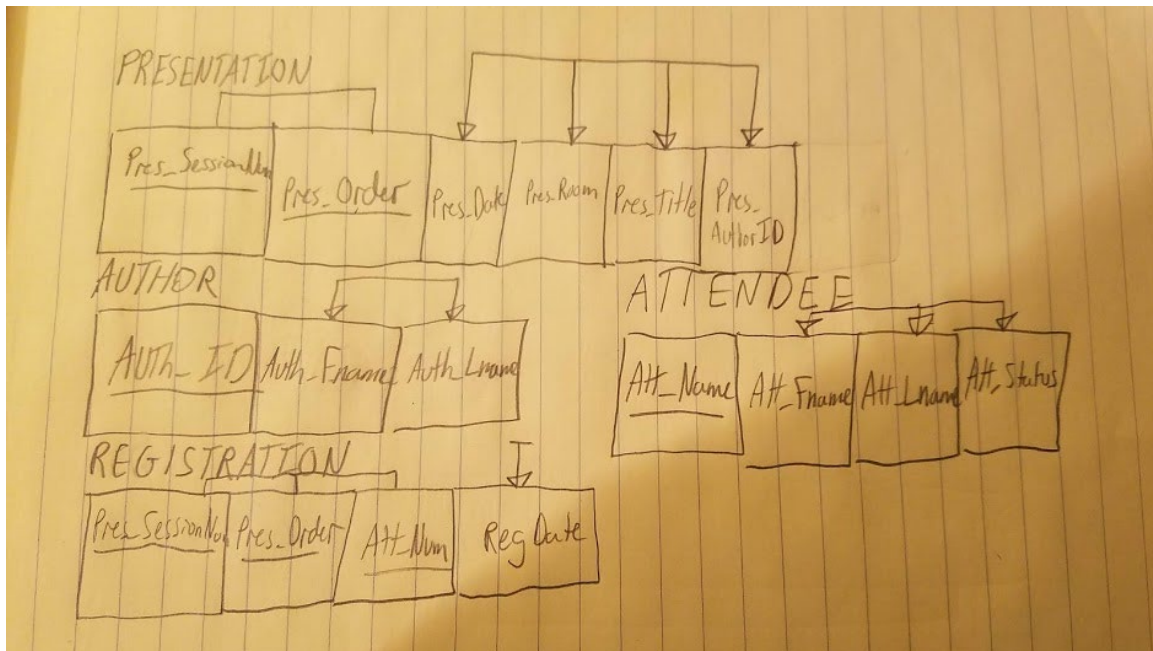 PRESENTATION
Pres_SessionNum Pres_Order Pres_Date Pres_Room Pres_Title Pres_
AuthorID
AUTHOR
AUTh_ID Auth_Fname Auth_Lname
ATTENDEE
Att_Name Att_Fname Att_Lname Att_Status
REGISTRATION
Pres_SessionNum Pres_Order Att_Num Reg Date